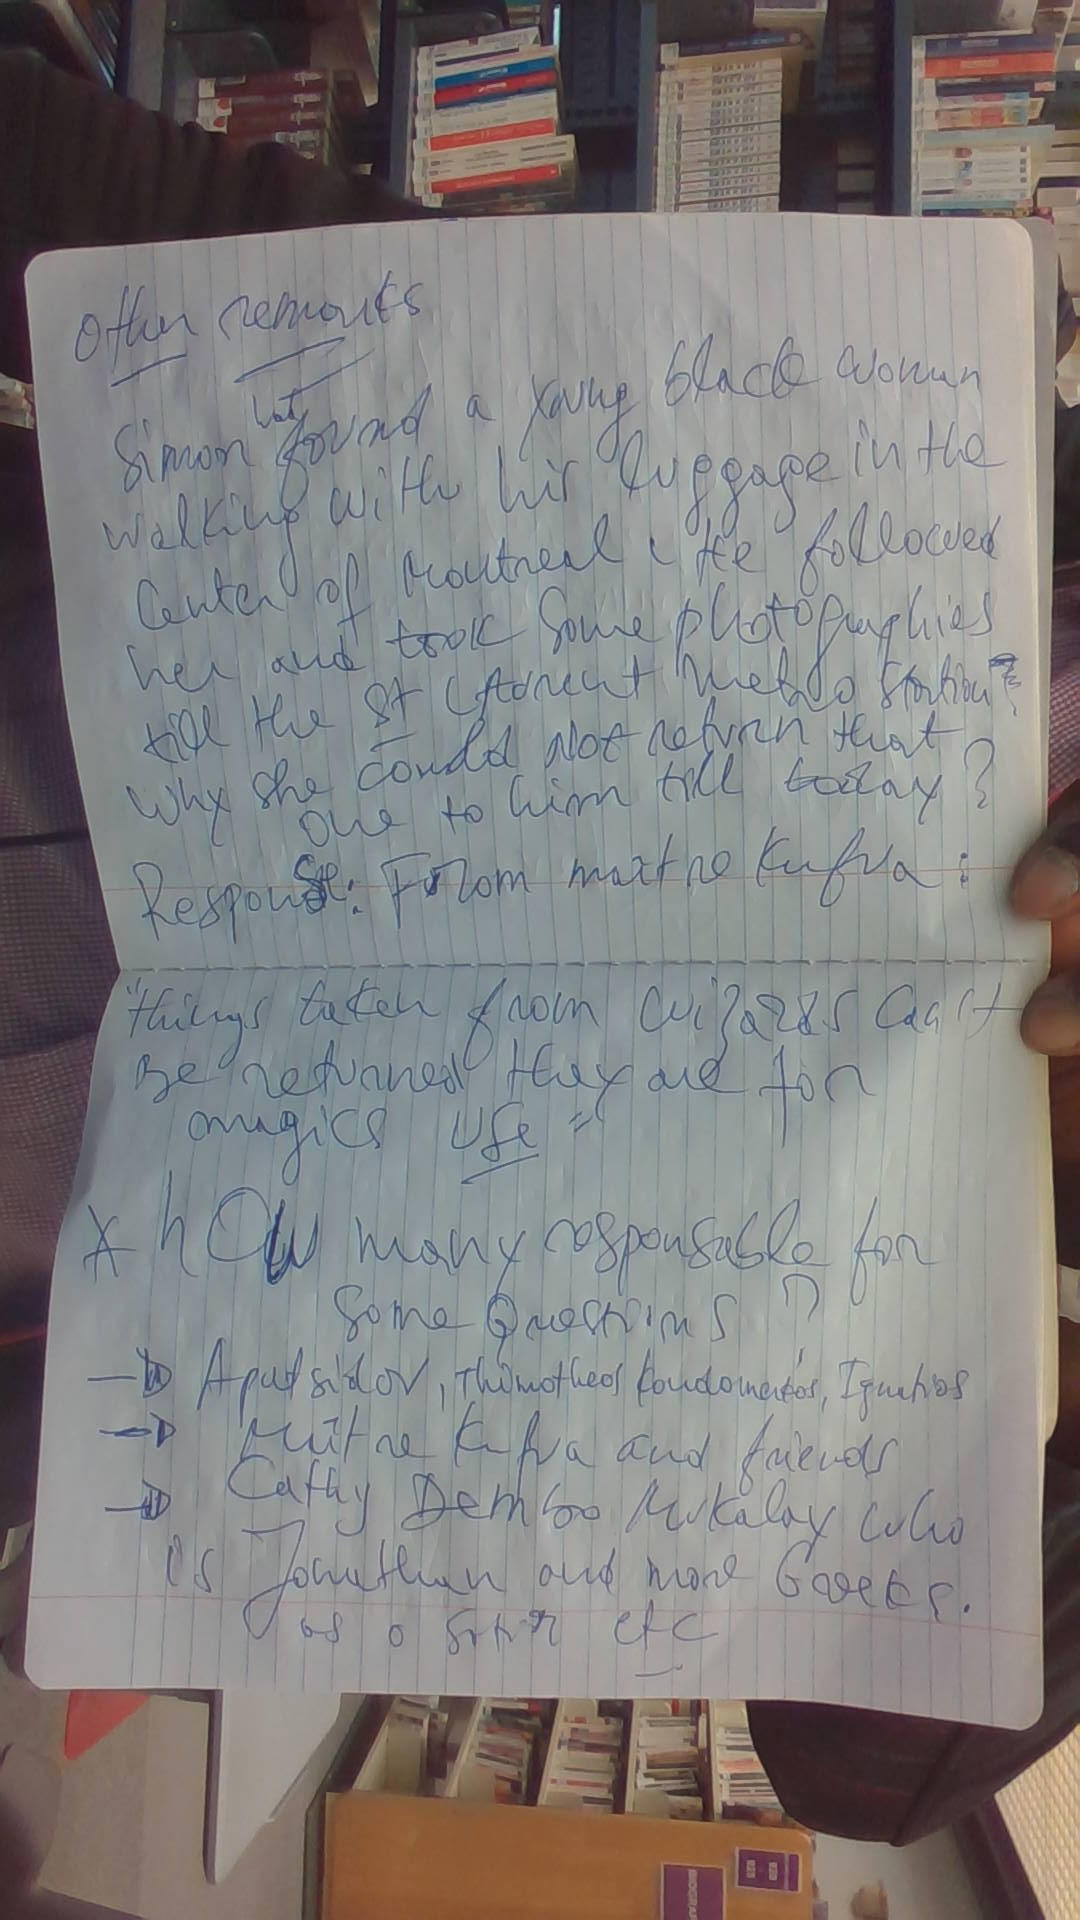 Other remarks
Simon found a young black woman
walking with his luggage in the
Center of Montreal. He followed
her and took some photographies
till the St Laurent metro station
why she could not return that
one to him till today?
Response: From maitre Kufva:
"things taken from wizards can't
be returned they are for
magics use"
* how many responsable for
some Questions?
→ Apatsidov, Thimotheos Kondomentos, Ignatios
→ Maitre Kufva and friends
→ Cathy Dembo Mukalay who
is Jonathan and more Greeks.
as a etc
BIOGRA